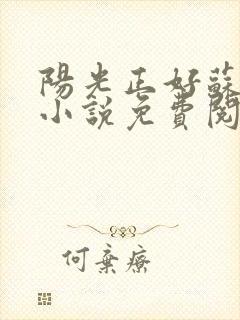 陽光正好蘇
小說免費閱
何棄療